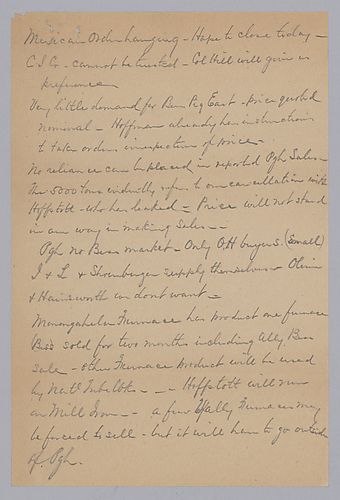 Mexican Order hanging - Hope to close today -
C.S.Co. - cannot be trusted - Col Hill will give us
preference
Very little demand for Bess Pig East - price quoted
nominal - Hoffman already has instructions
to take orders irrespective of price -
No reliance can be placed in reported Pgh Sales -
The 5000 tons evidently refers to our cancellation with
Hoffstott - who has leaked - Price will not stand
in our way in making Sales - -
Pgh no Bess market - Only OH buyers (small)
J & L & Shoenberger supply themselves - Oliver
& Hainsworth do not want -
Monongahela Furnace has product one furnace
Bess sold for two months including Ally Bess
sale - other Furnace product will be used
by Natl Tube Wks - - - Hoffstott will run
on Mill Iron - - a few Vally Furnaces may
be forced to sell - but it will have to go outside
of Pgh.